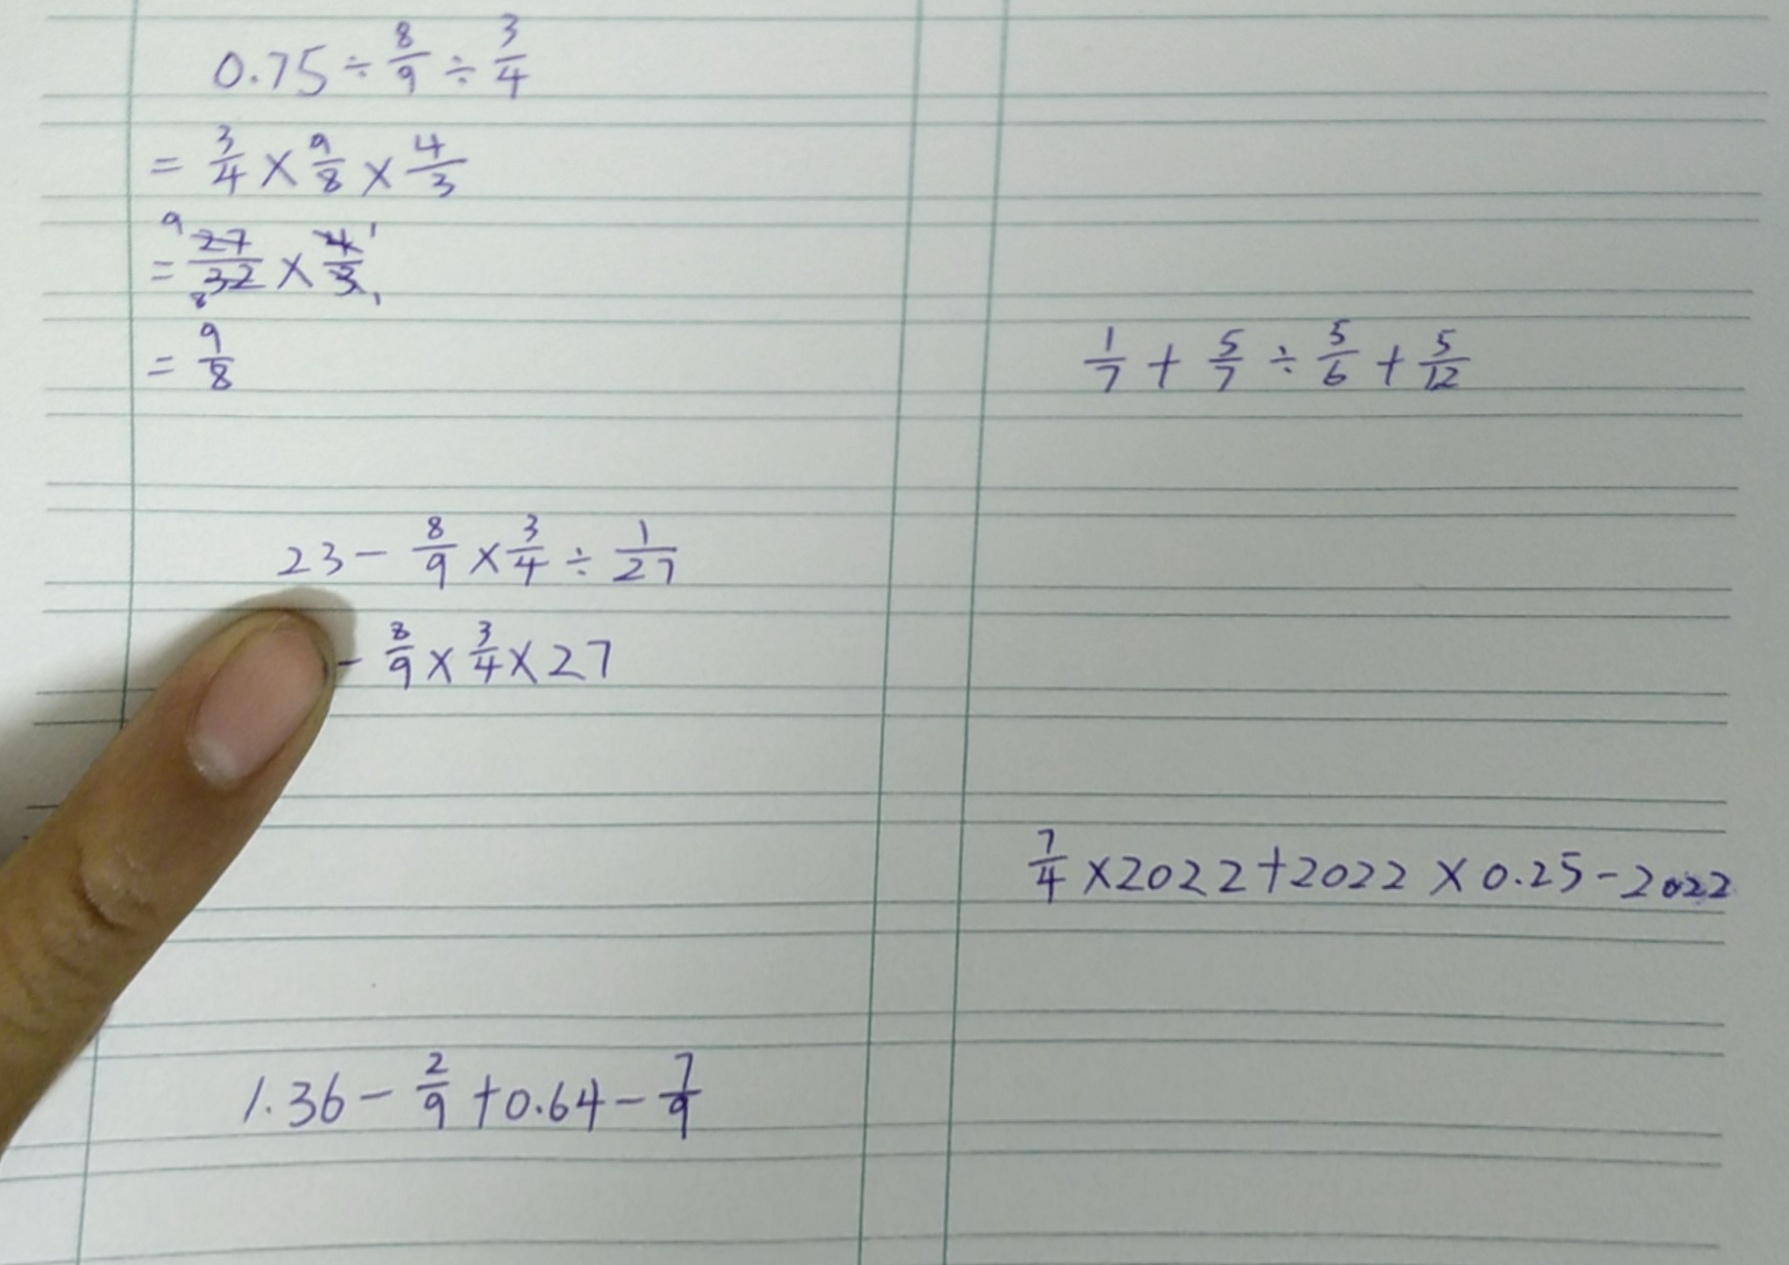 0.75 ÷ 8/9 ÷ 3/4
= 3/4 × 9/8 × 4/3
= 27/32 × 4/3 9 8 1 1
= 9/8
23 - 8/9 × 3/4 ÷ 1/27
- 8/9 × 3/4 × 27
1.36 - 2/9 + 0.64 - 7/9
1/7 + 5/7 ÷ 5/6 + 5/12
7/4 × 2022 + 2022 × 0.25 - 2022